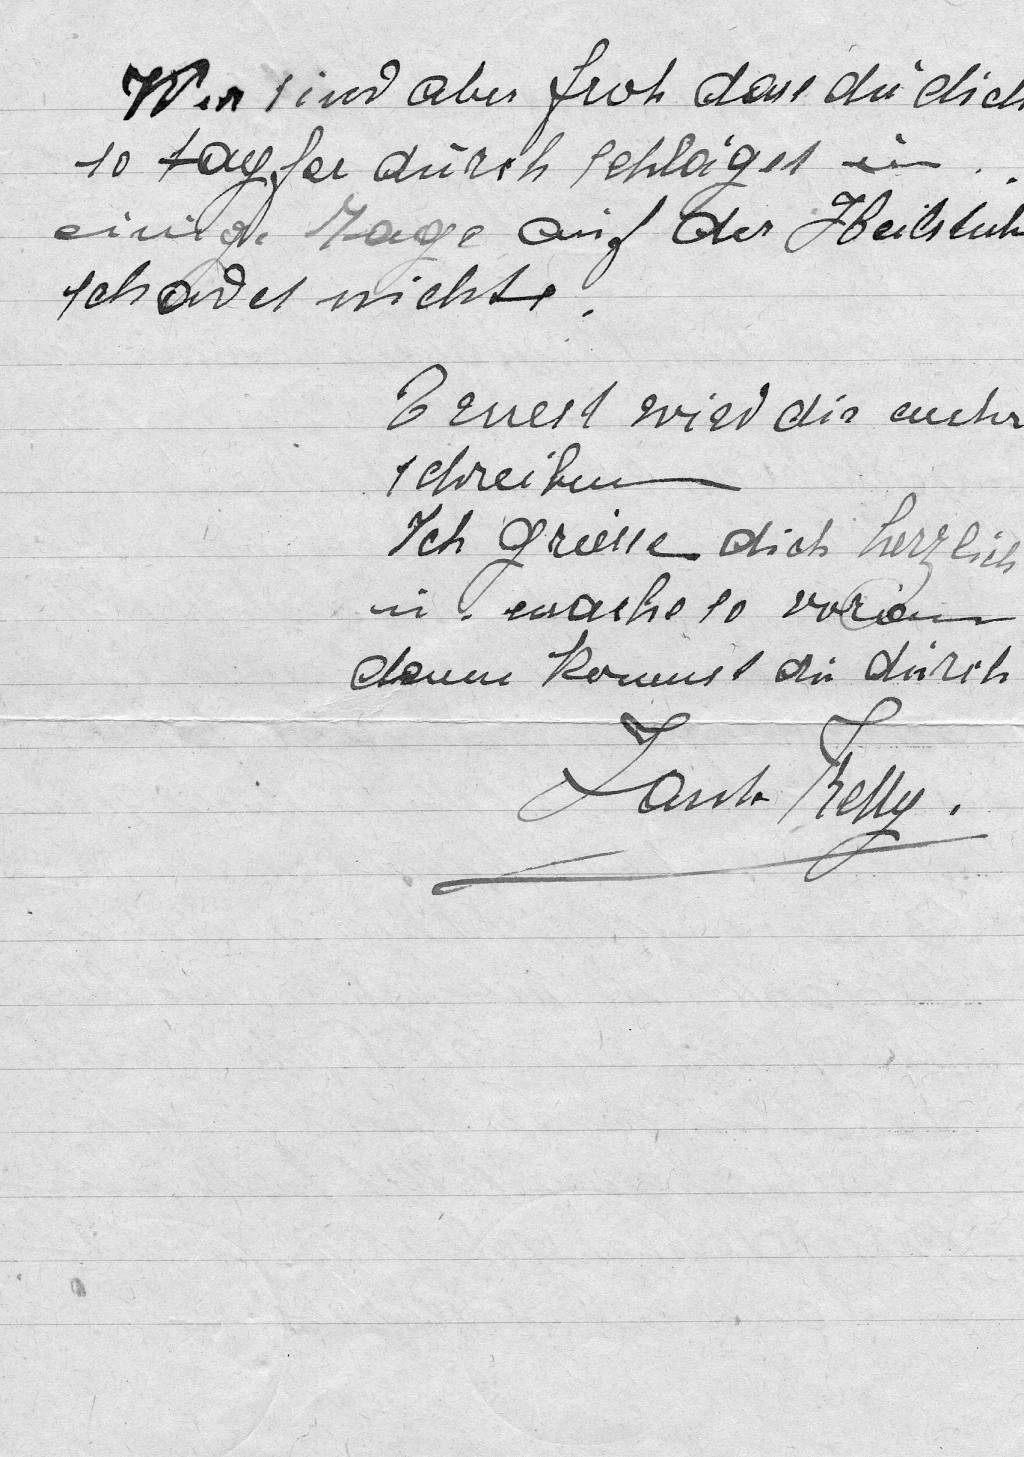 Wir sind aber froh dass du dich
so tapfer durch schlägst u.
einige Tage auf der
schadet nichts.
Ernest wird dir mehr
schreiben
Ich grüsse dich herzlich
u. mache so voran
dann kommst du durch
Tante Kelly.